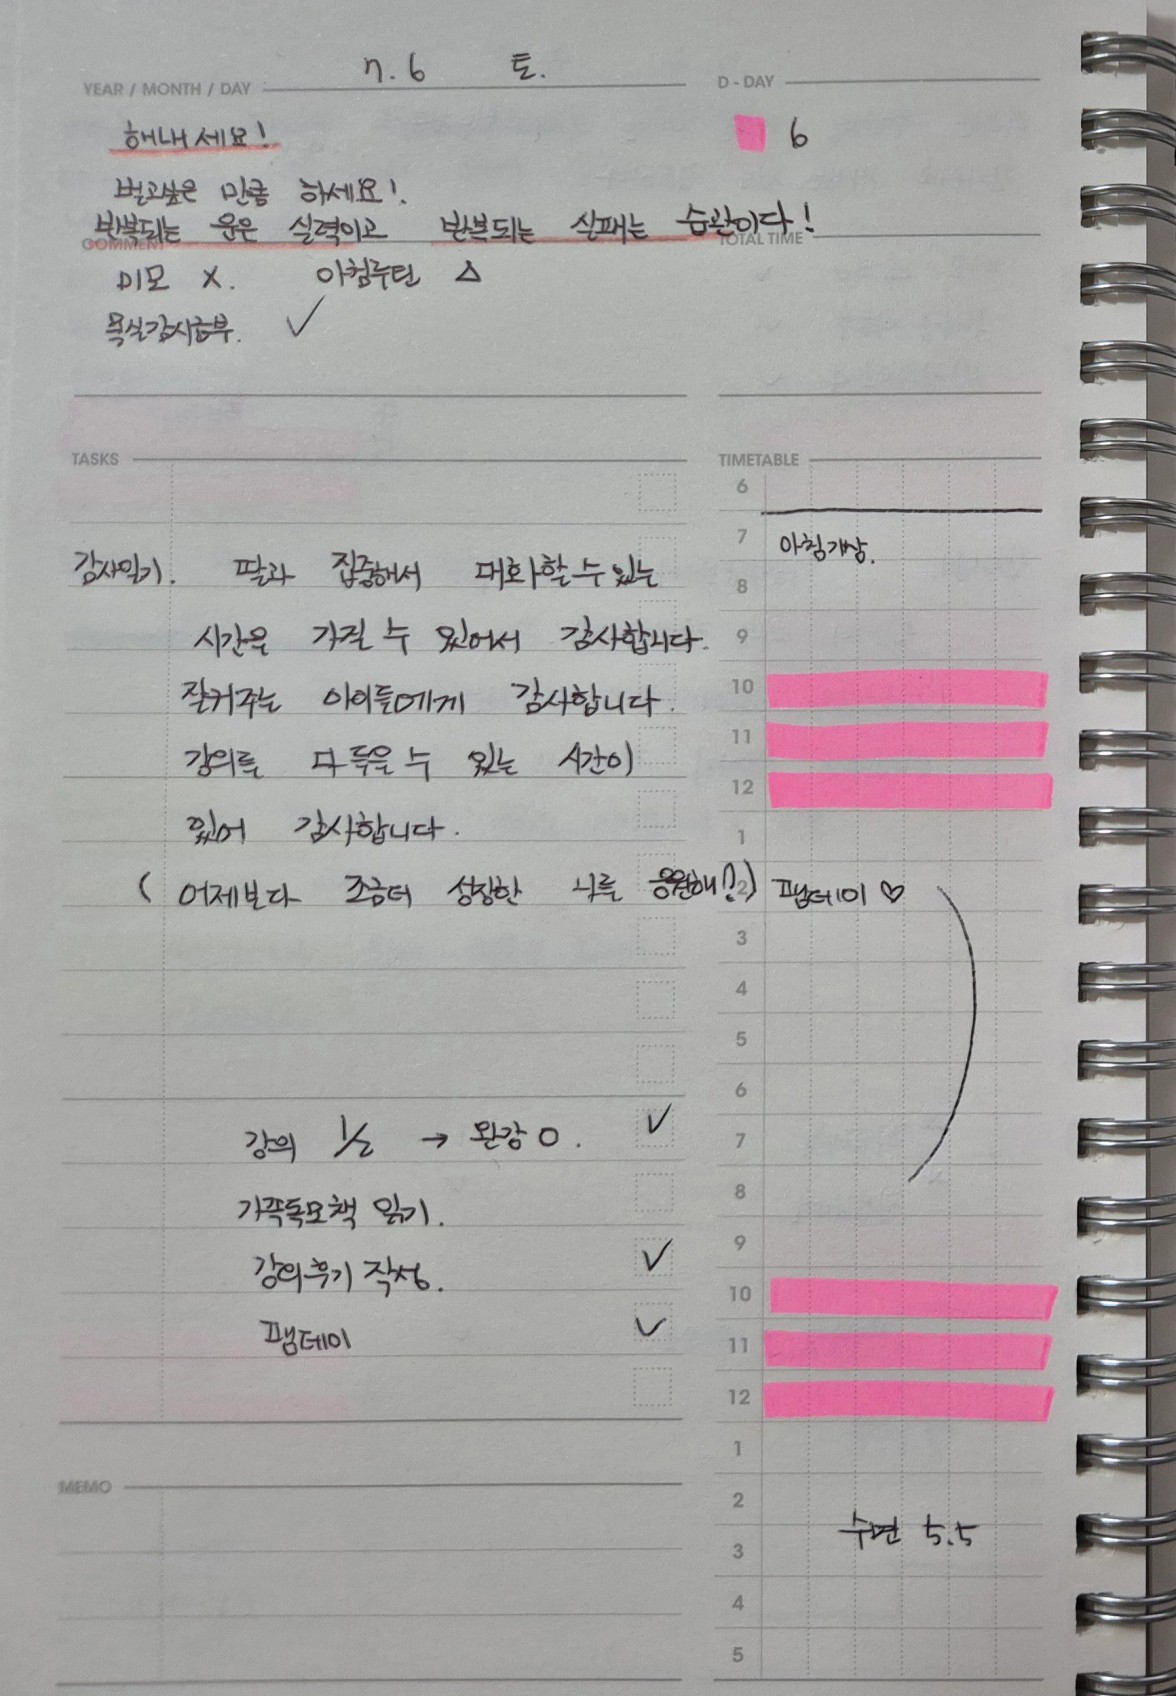 YEAR / MONTH / DAY 7. 6 토.
해내세요!
벌고싶은 만큼 하세요!
반복되는 운은 실력이고 반복되는 실패는 습관이다!
COMMENT
미모 X. 아침루틴 △
목실감시금부. ✓
D - DAY
6
TOTAL TIME
TASKS
감사일기. 딸과 집중해서 대화할 수 있는
시간을 가질 수 있어서 감사합니다.
잘커주는 아이들에게 감사합니다.
강의를 다 들을 수 있는 시간이
있어 감사합니다.
( 어제보다 조금더 성장한 나를 응원해!! )
강의 1/2 → 완강 O. ✓
가족독모책 읽기.
강의후기 작성. ✓
팸데이 ✓
MEMO
TIMETABLE
6
7 아침기상.
8
9
10
11
12
1
2 팸데이 ♡
3
4
5
6
7
8
9
10
11
12
1
2
수면 5.5
3
4
5